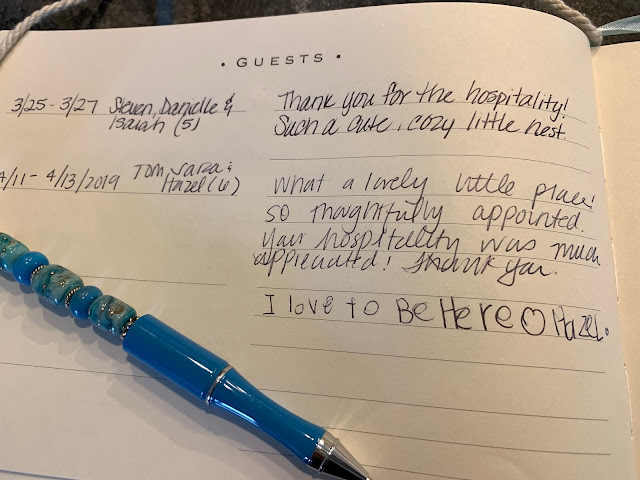 • GUESTS •
3/25 - 3/27 Steven, Danielle &
Isaiah (5)
Thank you for the hospitality!
Such a cute, cozy little nest.
4/11 - 4/13/2019 Tom, Sara &
Hazel (6)
What a lovely little place!
So thoughtfully appointed.
Your hospitality was much
appreciated! Thank you.
I love to Be Here ♡ Hazel.